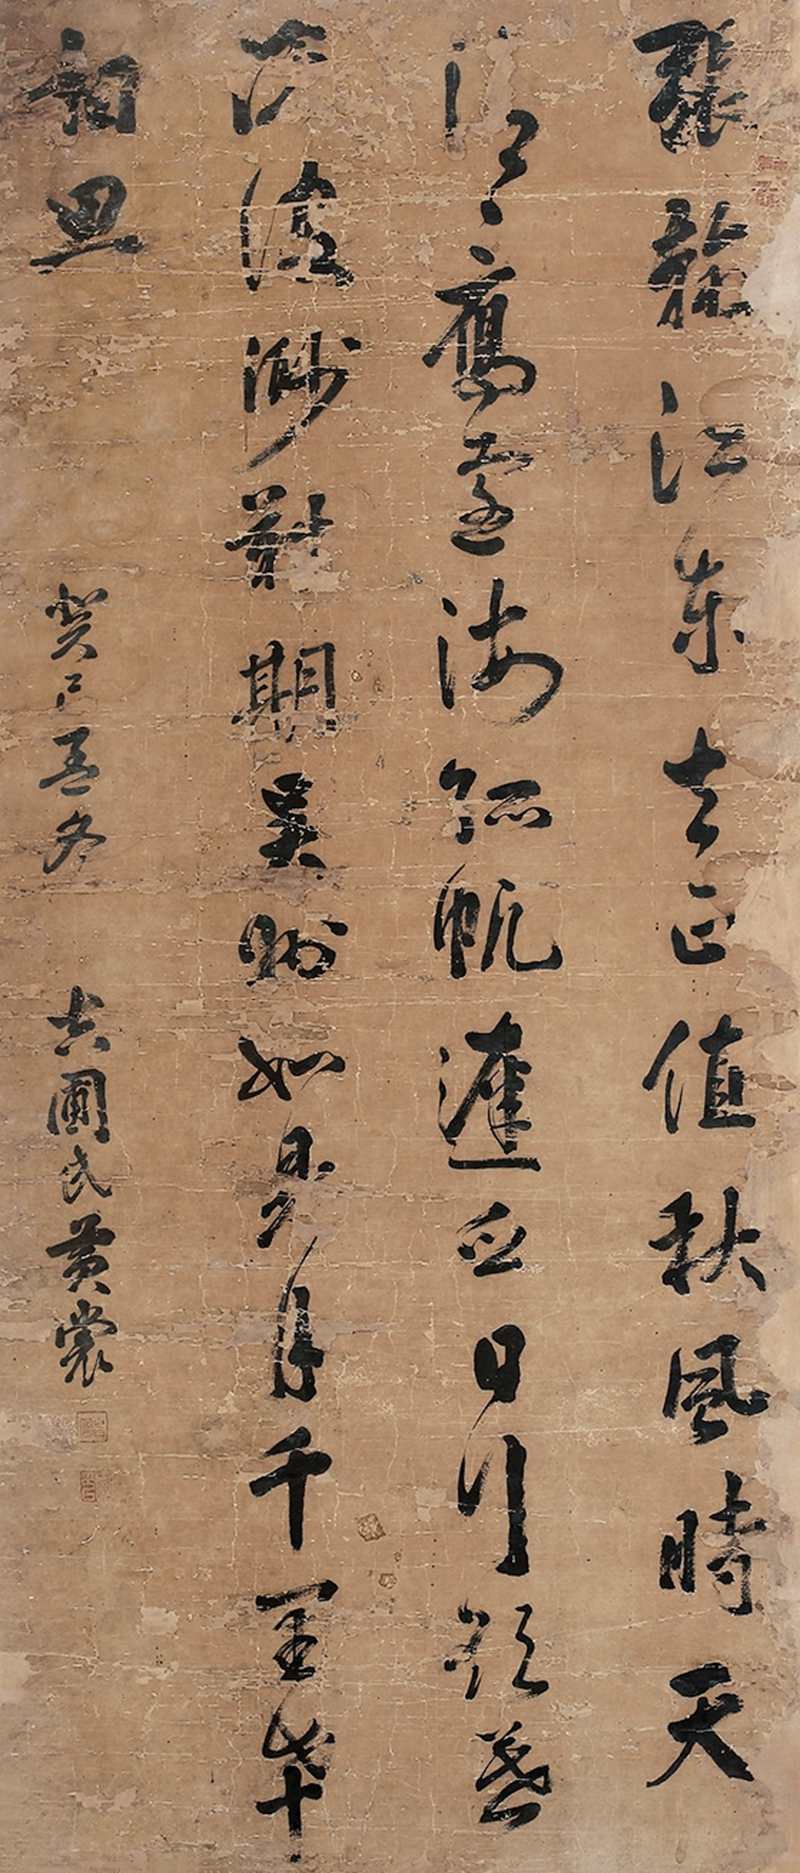 張翰江東去正值秋風時天
清一鴈遠海孤帆遲白日行欲暮
滄波渺難期吳洲如見月千里幸
相思
癸巳孟冬
圃民黃裳